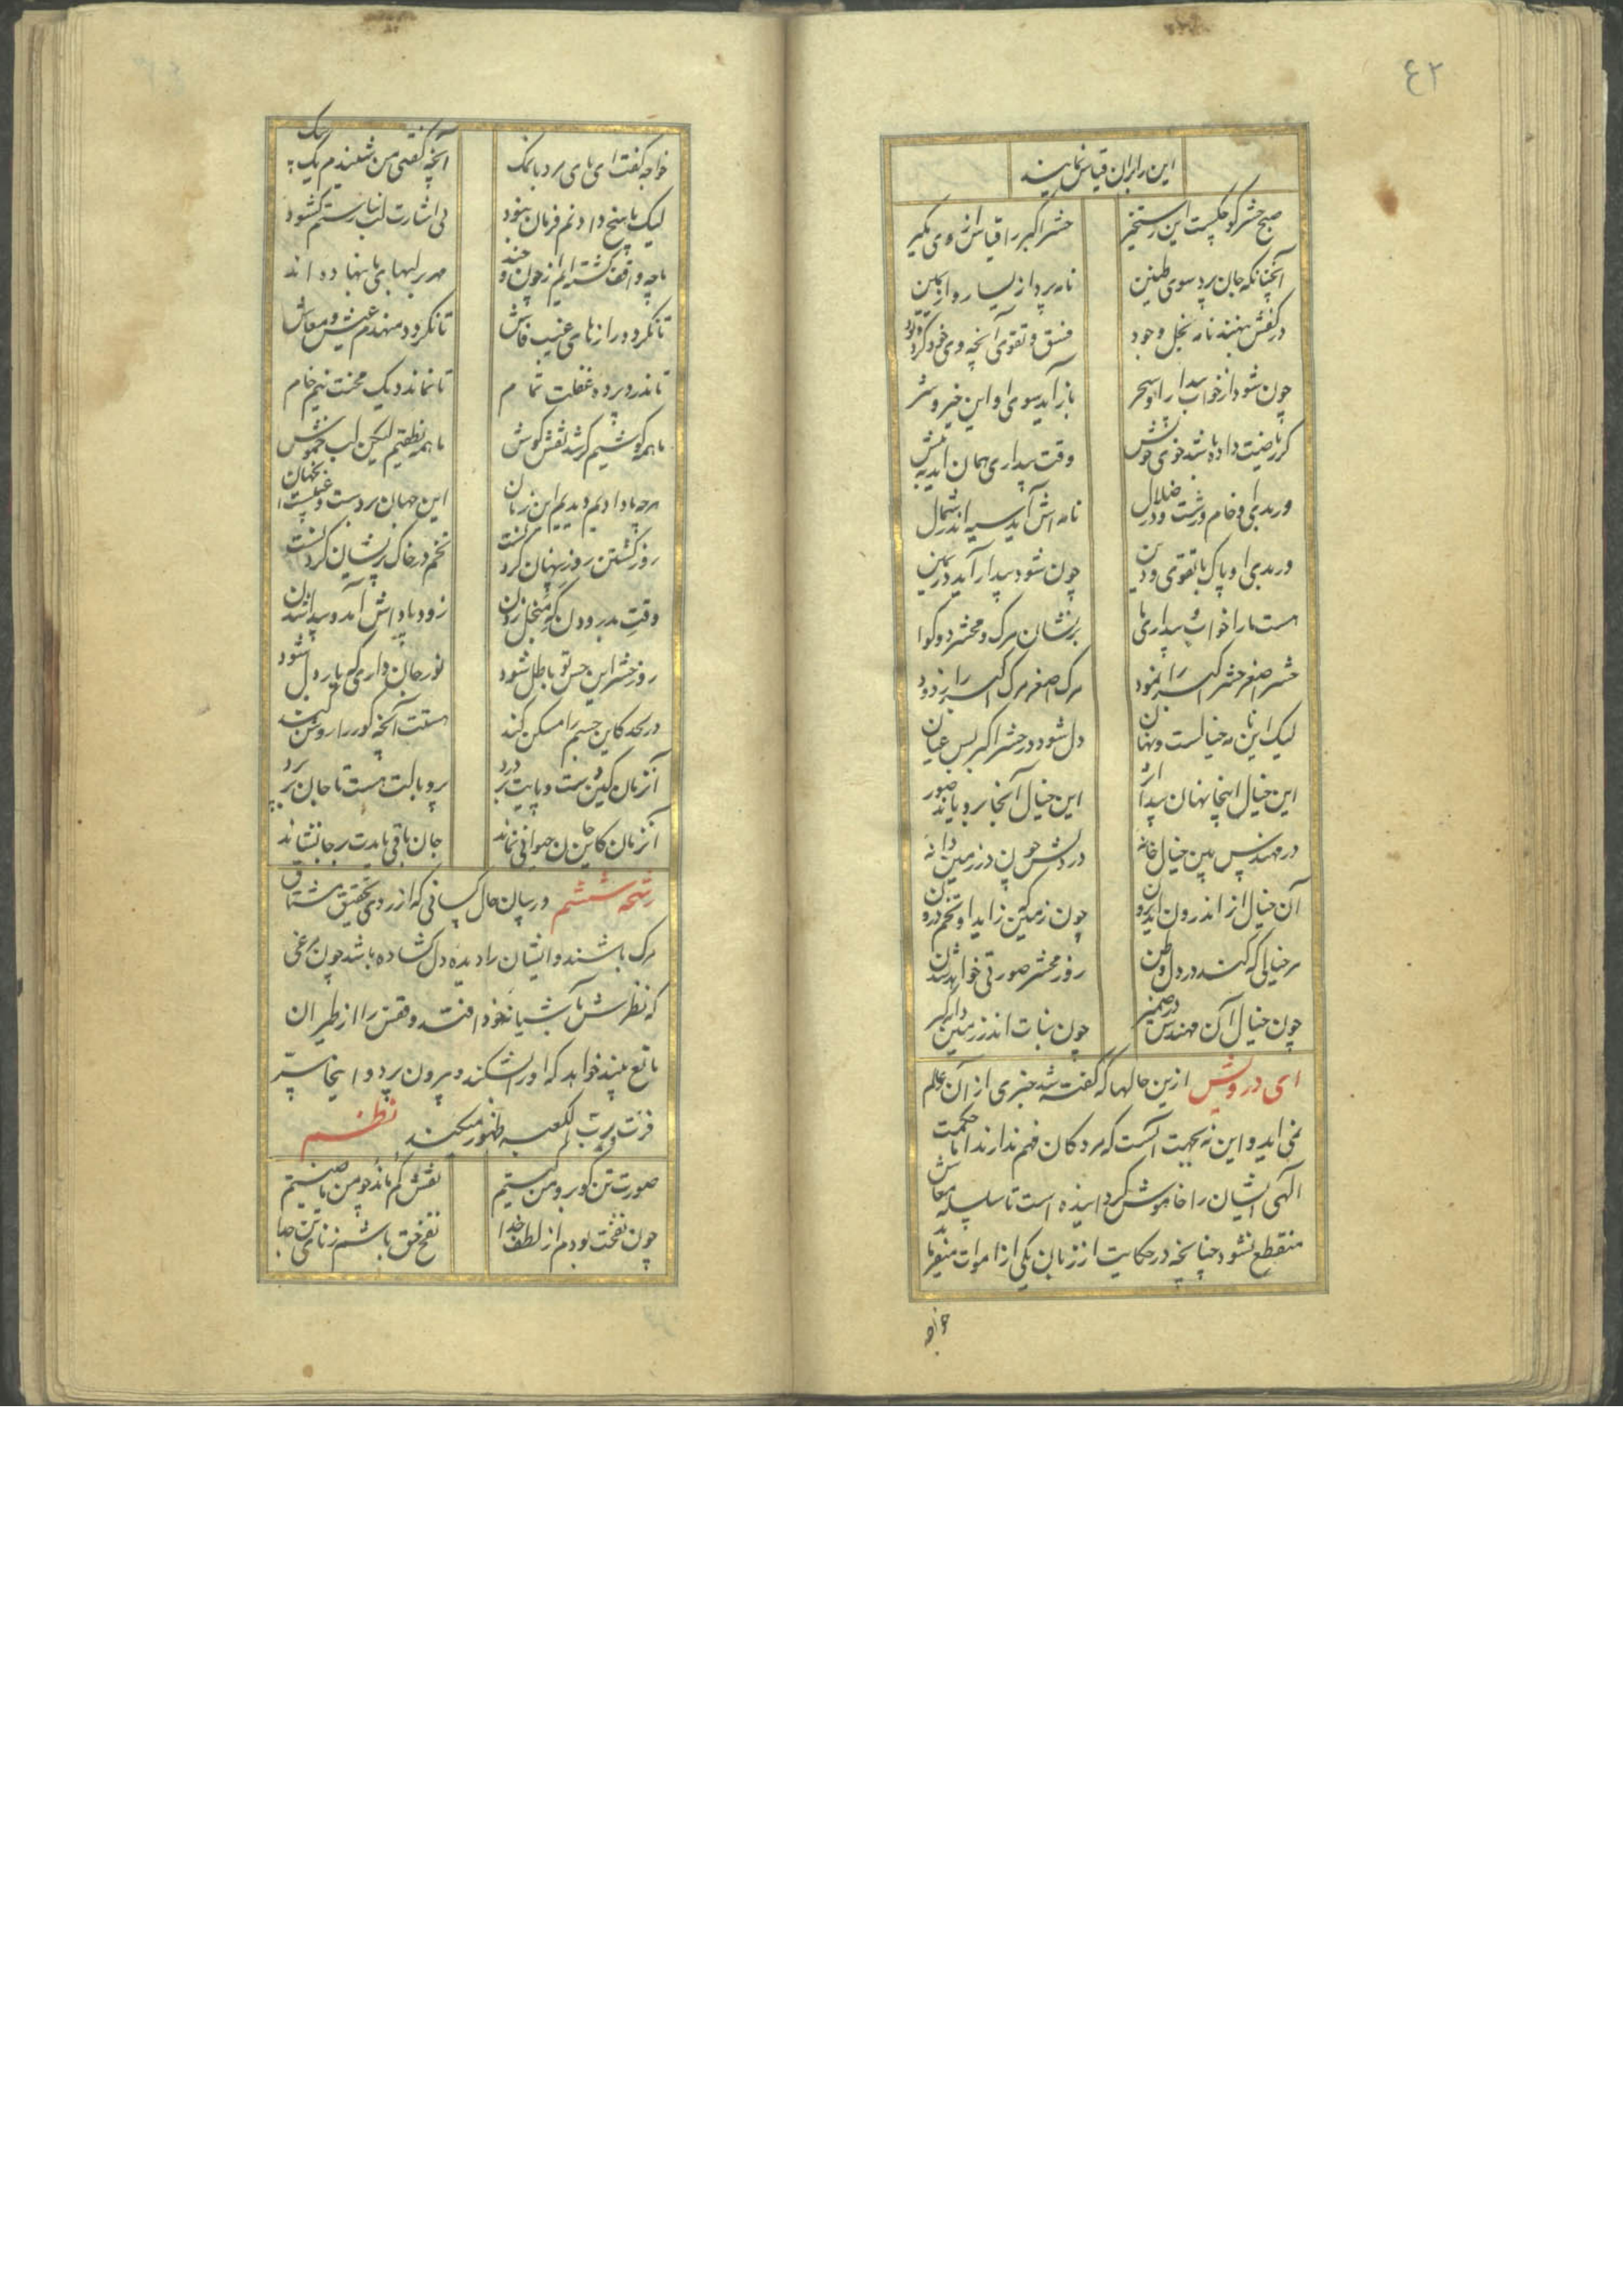 ٤٢
این را بران قیاس نمایند
صبح حشر کوچکست این رستخیز حشر اکبر را قیاس از وی بگیر
آنچنانکه جان پرد سوی طنین نامه پرد از یسار و از یمین
در کفش بنهند نامه بخل وجود فسق و تقوی آنچه وی خو کرده بود
چون شود از خواب بیدار او سحر باز آید سوی او این خیر و شر
گر ریاضت داده باشد خوی خویش وقت بیداری همان آید به پیش
ور بدی او خام و زشت و در ضلال نامه اش آید سیه اندر شمال
ور بدی او پاک با تقوی و دین چون شود بیدار آید در یمین
هست ما را خواب و بیداری ما بر نشان مرگ و محشر دو گوا
حشر اصغر حشر اکبر را نمود مرگ اصغر مرگ اکبر را زدود
لیک این نامه خیالست و نهان دل شود در حشر اکبر بس عیان
این خیال اینجا نهان پیدا اثر این خیال آنجا برویاند صور
در مهندس بین خیال خانه در دلش چون در زمین دانه
آن خیال از اندرون آید برون چون زمین کین زاید او تخم درون
هر خیالی که کند در دل وطن روز محشر صورتی خواهد شدن
چون خیال آن مهندس در ضمیر چون نبات اندر زمین دانه گیر
ای درویش ازین حالها که گفته شد خبری از آن عالم
نمی آید و این نه بجهت آنست که مردکان فهم ندارند اما حکمت
الهی ایشان را خاموش گردانیده است تا سلسله معاش
منقطع نشود چنانچه در حکایت از زبان یکی از اموات میفرماید
خواجه
خواجه گفت ای پای مرد با نمک آنچه گفتی من شنیدم یک بیک
لیک پاسخ دادنم فرمان نبود بی اشارت لب نیارستم گشود
ما چو واقف گشته ایم از چون و چند مهر بر لبهای ما بنهاده اند
تا نکردد رازهای غیب فاش تا نکردد منهدم عیش و معاش
تا ندرد پرده غفلت تمام تا نماند دیک محنت نیم خام
ما همه گوشیم کر شد نقش گوش ما همه نطقیم لیکن لب خموش
هر چه ما دادیم دیدیم این زمان این جهان پردست و عینست آنجهان
روز کشتن روز پنهان کردنست تخم در خاک پریشان کردنست
وقت بدرودن گه منجل زدن روز پاداش آمد و پیدا شدن
روز حشر این حس تو باطل شود نور جان داری که یار دل شود
در لحد کاین چشم را مسکن کند هستت آنچه گور را روشن کند
آنزمان کین دست و پایت بر درد پر و بالت هست تا جان بر پرد
آنزمان کاین جان حیوانی نماند جان باقی بایدت بر جا نشاند
رشحه ششم در بیان حال کسانی که از روی تحقیق مشتاق
مرگ باشند و ایشان را دیده دل گشاده باشد چون مرغی
که نظرش بآشیانه خود افتد و قفس را از طیران
مانع بیند خواهد که او را بشکند و بیرون پرد و اینجا سرّ
فزت و رب الکعبه ظهور میکند نظم
صورت تن گو برو من کیستم نقش کم ناید چو من باقیستم
چون نفخت بودم از لطف خدا نفخ حق باشم ز نای تن جدا